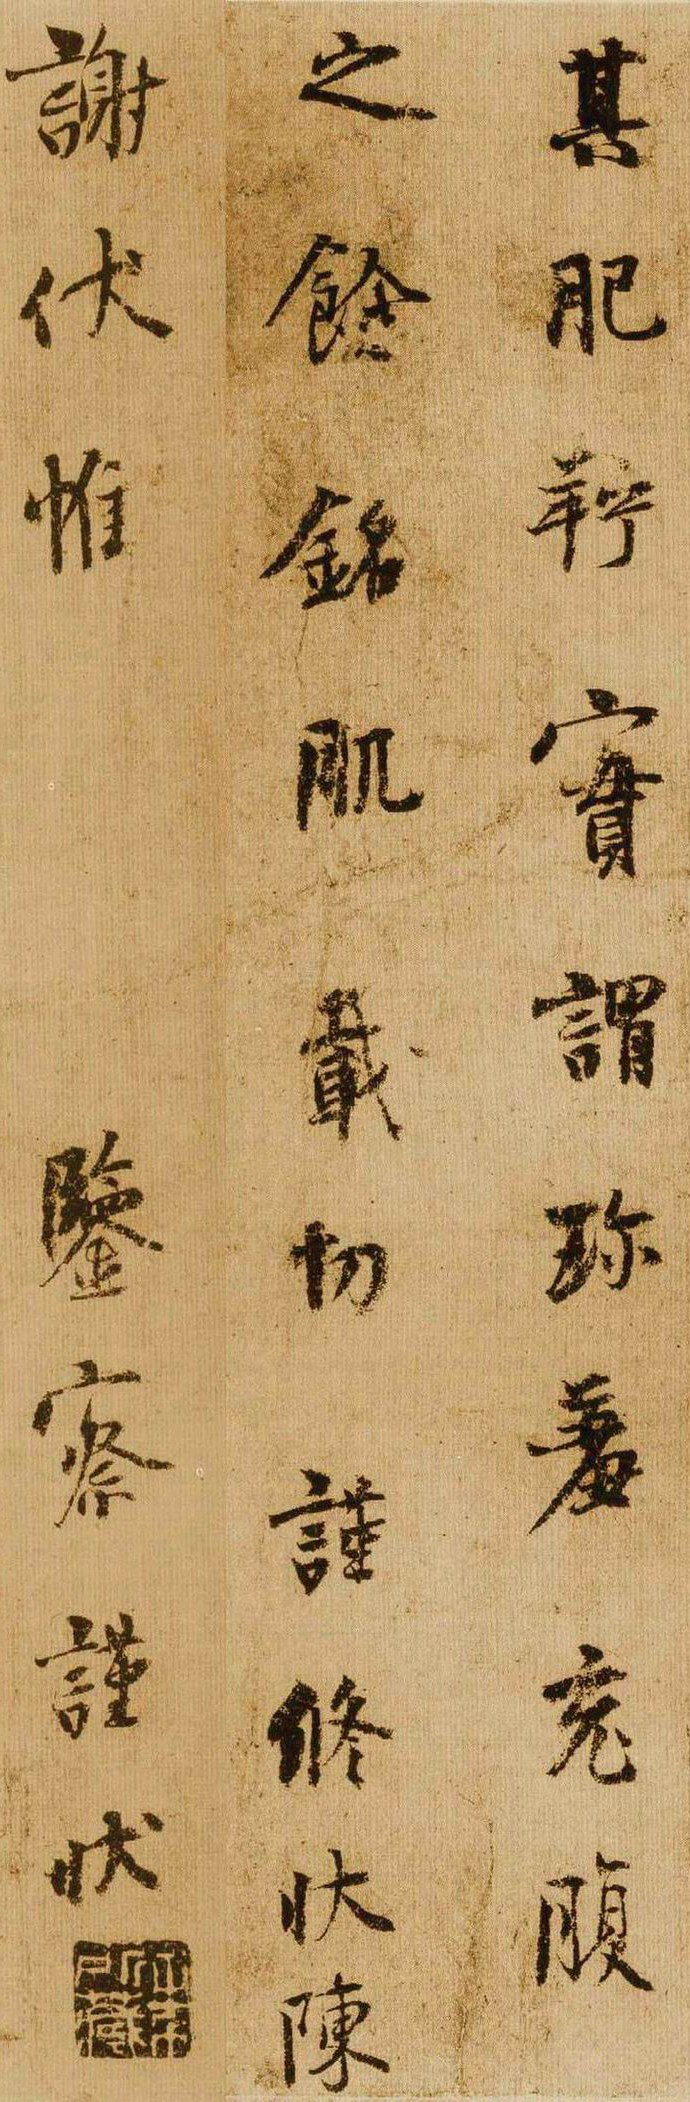 其肥羜實謂珍羞充腹
之餘銘肌載切謹修狀陳
謝伏惟
鑒察謹狀